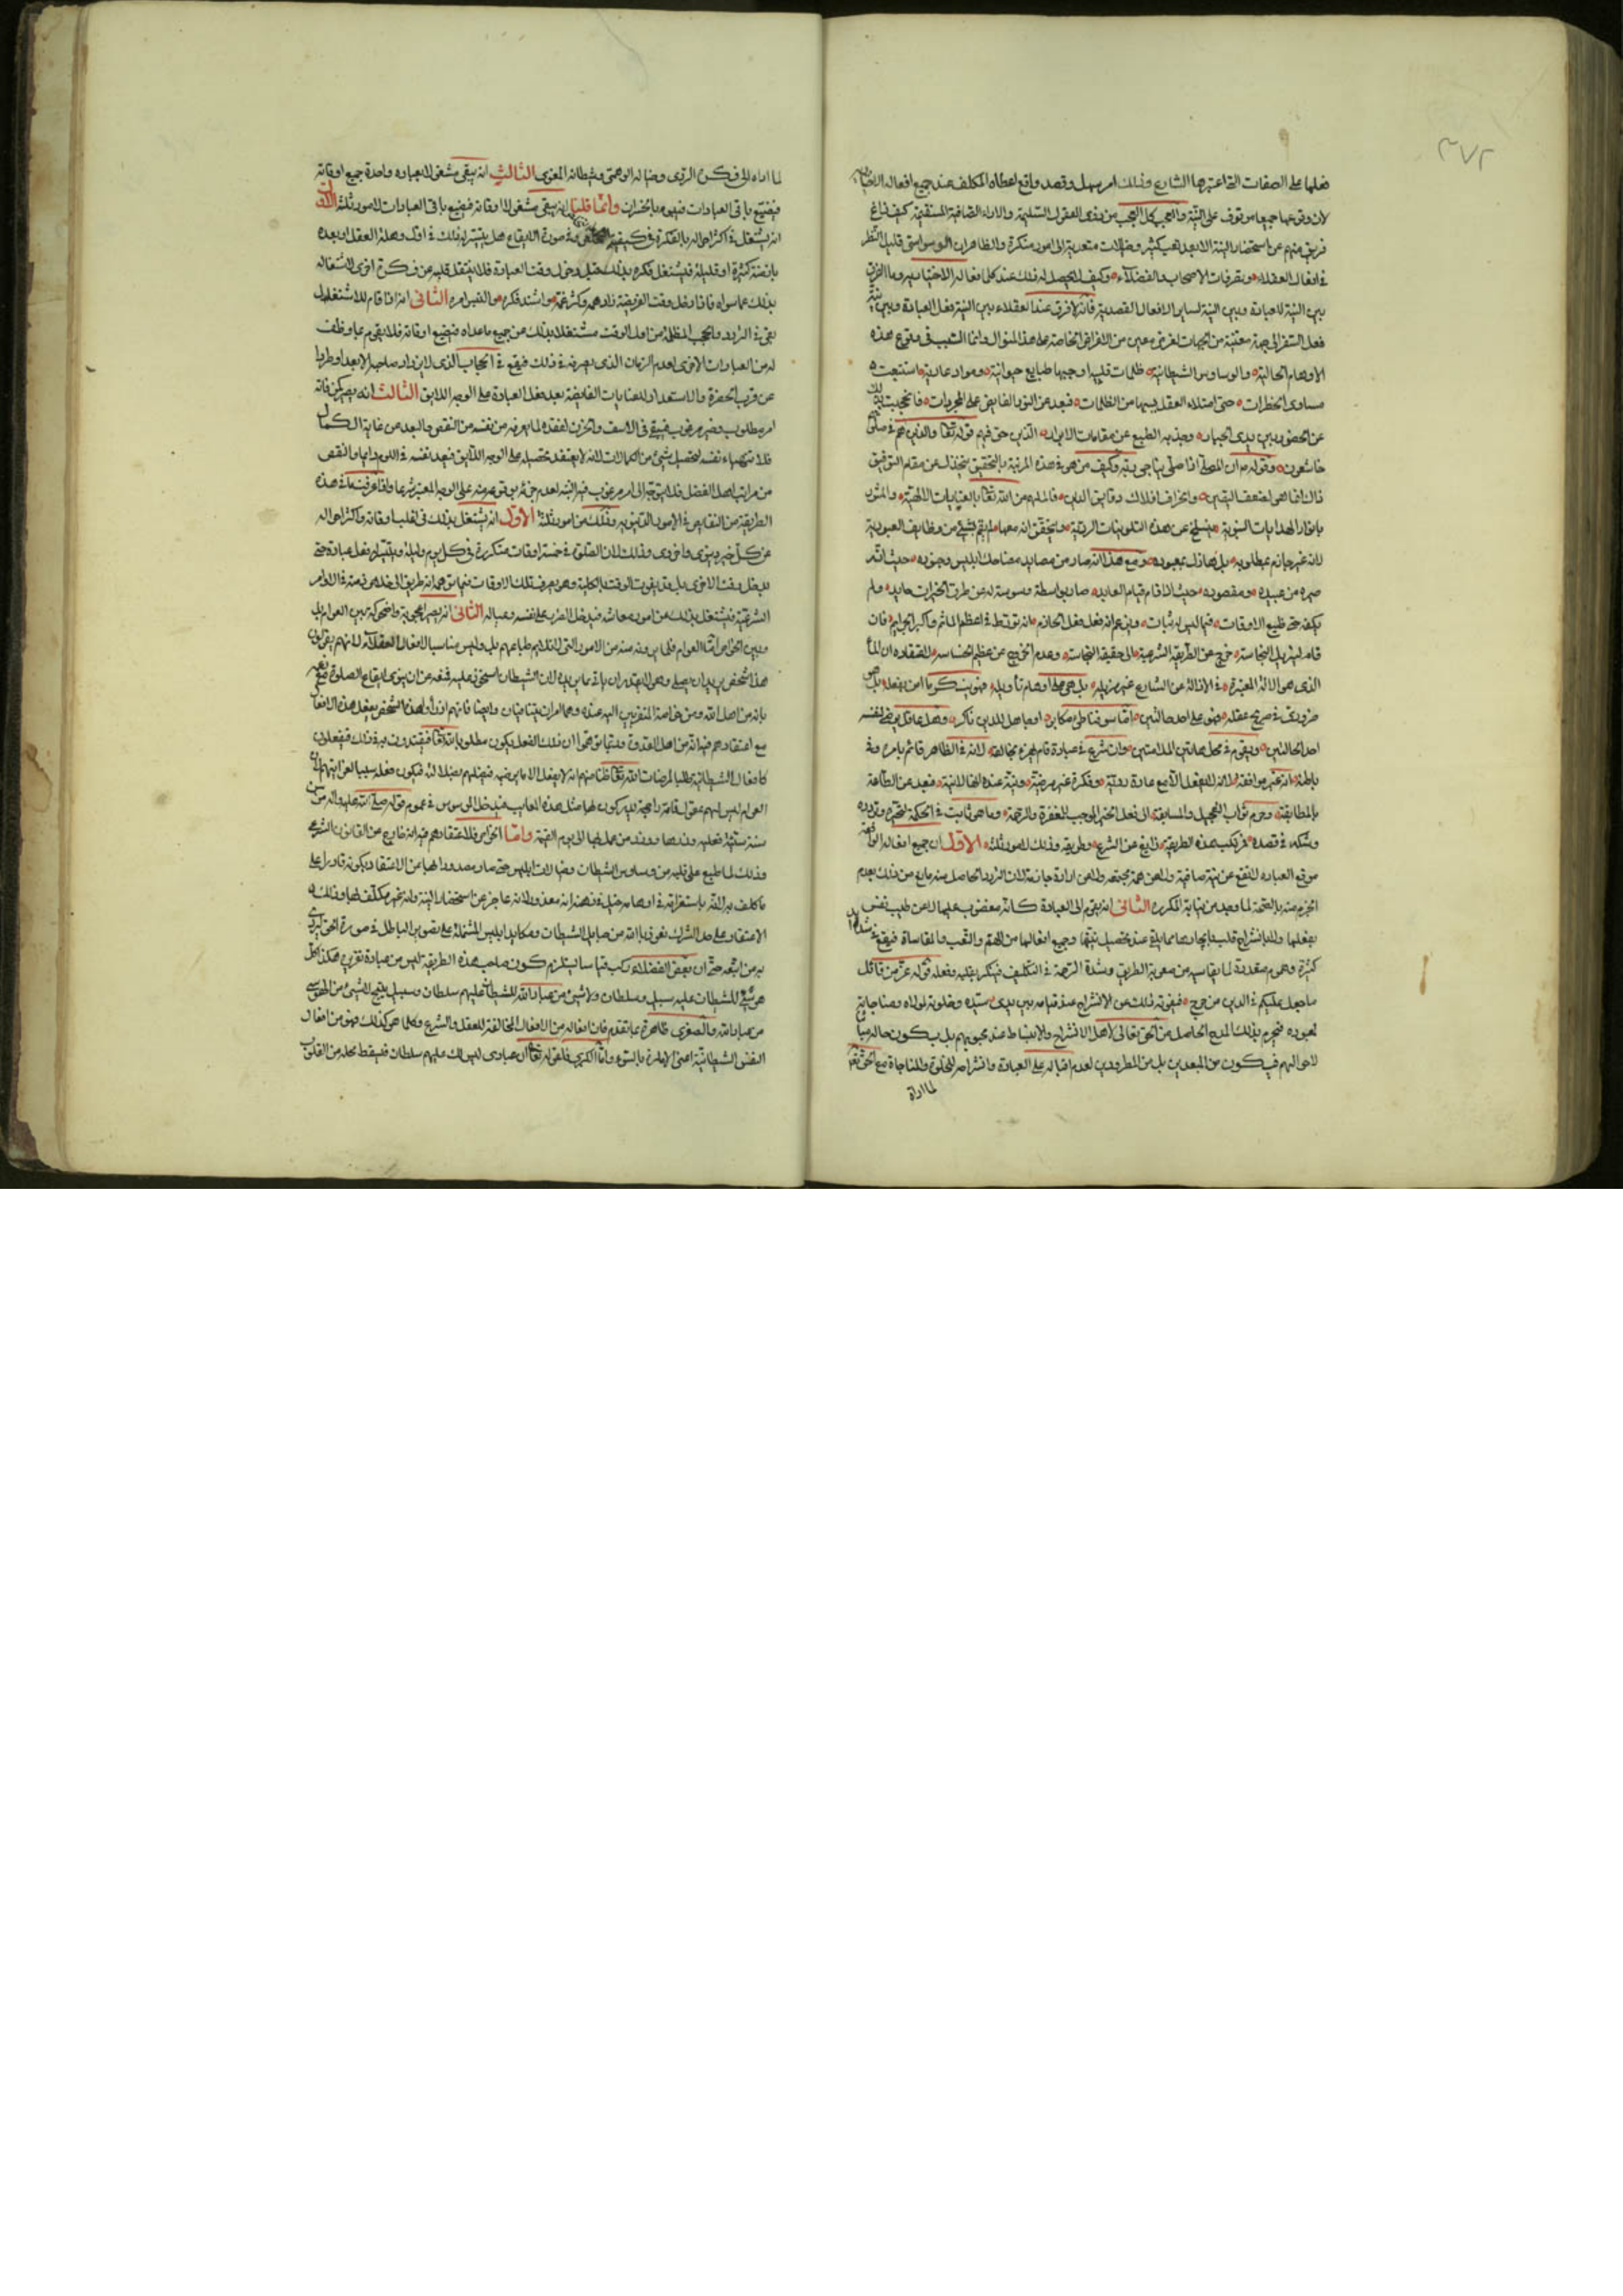 ٣٧٢
فعلها على الصفات التى اعتبرها الشارع وذلك امر سهل وقصد واقع اعطاه المكلف عند جميع افعاله
لان وقوعها جميعا موقوف على النية والعجب كل العجب من ذوى العقول السليمة والاراء الصافية المستقيمة كيف زاغ
فريق منهم عن استحضار النية الا بعد تعب كثير وخيالات متعدية الى امور منكرة والظاهر ان الوسواسى قليل النظر
فى افعال العقلاء وتصرفات الاصحاب والفضلاء وكيف لا يحصل له ذلك عند كل افعاله الاختياريه وما الفرق
بين النية للعبادة وبين النية لساير الافعال القصدية فانه لا فرق عند العقلاء بين النية لفعل العبادة وبين نية
فعل السفر الى جهة معينة من الجهات لغرض معين من الاغراض الخاصة على هذا المنوال وانما السبب فى وقوع هذه
الاوهام الخالية والوساوس الشيطانية ظلمات قلبية اوجبها طبايع حيوانية ومواد عادية استتبعت
مساوى الخطرات حتى امتلاء العقل بسببها من الظلمات فبعد عن النور الفايض على المجردات فانحجبت بذلك
عن الحضور بين يدى الجبار وجذبه الطبع عن مقامات الابرار الذين حق فيهم قوله تعالى والذين هم فى صلاتهم
خاشعون وقوله ص ان المصلى اذا صلى يناجى ربه وكيف من هو فى هذه المرتبة بالتحقيق ينخذل عن مقام التوفيق
ذلك انما هو لضعف اليقين وانحراف افلاك دقايق الدين فالملهم من الله تعالى بالعنايات الالهية والمنور
بانوار الهدايات النبوية ينسلخ عن هذه التلوينات الردية ويتحقق انه معها لم يقم بشئ من وظايف العبودية
لانه غير جازم بمطلوبه بل هازل بمعبوده ومع هذا انه صار من مصايد مضاحك ابليس وجنوده حيث انه
صيره من عبيده ومقصوده حيث اذا قام قيام العابد صار بواسطة وسوسته له عن طرق الخيرات حايد ولم
يكفه حتى ضيع الاوقات فيما ليس له ثبات وبزعم انه فعل فعل الحازم مانه تورط فى اعظم الماثم واكبر الجرايم فان
قام ليزيل النجاسة خرج عن الطريقة الشرعية الى حقيقة النجاسة وعدم الخروج عن عظيم الخساسة لاعتقاده ان الماء
الذى هو الالة المعتبرة فى الازالة عن الشارع غير مزيله بل هو على اوهام تأويله فهو ينكر ما امن بفعله بل هو
ضرورى فى صريح عقله فهو على احد حالتين اما سوفسطائى مكابر او جاهل للدين ناكر وهل عاقل يرضى لنفسه
احد الحالتين ويقوم فى محل هاتين المذمتين وان شرع فى عبادة قام لجزم مخالفه لانه فى الظاهر قائم بامر وفى
باطنه انه غير موافقه لانه لا يفعل الا مع عادة ردية وفكرة غير مرضية ونية عنده انها لا نية فبعد عن الطاعة
بالمطابقة وحرم ثواب التعجيل والمسابقة الى فعل الخير الموجب للمغفرة والرحمة وما هو ثابت فى الحكمة لتحيره وتردده
وشكه فى قصده فمرتكب هذه الطريقة زايغ عن الشرع وطريقه وذلك لامور ثلثة الاول ان جميع افعاله الواقعة
موقع العبادة لا تقع عن نية صافية ولا عن همة مجتمعة ولا عن ارادة جازمة لان التردد الحاصل منه مانع من ذلك بعدم
الجزم منه بالصحة لما وجد من نيابة المكررة الثانى انه يقوم الى العبادة كانه مغضوب عليها لا عن طيب نفس
بفعلها ولا بانشراح قلب بايجادها مما يلقى عند تحصيل نيتها وجميع افعالها من الهم والتعب والمقاساة فيقع فى شدايد
كثيرة وهموم متعددة لما يقاسيه من صعوبة الطريق وشدة الزحمة فى التكليف فينكر بقلبه وفعله قوله عز من قائل
ما جعل عليكم فى الدين من حرج فيفوته ذلك عن الانشراح عند قيامه بين يدى سيده وخلوته لمولاه ومناجاته
لمعبوده فيحرم بذلك المدح الحاصل من الحق تعالى لاهل الانشراح والانبساط عند محبوبهم بل يكون حاله مباينا
لاحوالهم فيكون من المبعدين بل من المطرودين لعدم اقباله على العبادة وانشراحه للخلوة والمناجاة مع الحق تعالى
لما اداه
لما اداه اليه فكره الردى وخياله الوهمى وشيطانه المغوى الثالث انه يبقى مشغولا بعبادة واحدة جميع اوقاته
فيضيع باقى العبادات فيبوء بالخسران وانما قلنا انه يبقى مشغولا اوقاته فيضيع باقى العبادات لامور ثلثة الاول
انه يشتغل فى اكثر احواله بالفكرة فى كيفية وفى صورة الايقاع هل يتيسر له ذلك فى اول وهلة العقل او بعده
بازمنة كثيرة او قليلة فيشتغل فكره بذلك قبل دخول وقت العبادة فلا ينتقل قلبه عن فكرة اخرى لاشتغاله
بذلك عما سواه فاذا دخل وقت الفريضة زاد همه وكثر غمه واشتد فكره والتبس امره الثانى انه اذا قام للاشتغال
بقى فى التردد والحجب المظلمة من اول الوقت مشتغلا بذلك عن جميع ما عداه فيضيع اوقاته فلا يقوم بما وظف
له من العبادات الاخرى لعدم الزمان الذى يصرفه فى ذلك فيقع فى الحجاب الذى لا يزداد صاحبه الا بعدا وطردا
عن قرب الحضرة والاستعداد للعنايات الفايضة بعد فعل العبادة على الوجه اللايق الثالث انه يصير كمن فاته
امر مطلوب وخير مرغوب فيبقى فى الاسف والحزن لفقده لما يعرفه من نفسه من النقص والبعد عن غاية الكمال
فلا تتهياء نفسه لتحصيل شئ من الكمالات لانه لا يعتقد تحصيله على الوجه اللايق فيعد نفسه فى اللوم دايما والنقص
من مراتب اهل الفضل فلا يتوجه الى امر مرغوب فيه البتة لعدم جزمه بوقوعه منه على الوجه المعتبر شرعا واذا عرفت ما فى هذه
الطريقة من النقايص فى الامور الدينية وذلك من امور ثلثة الاول انه يشتغل بذلك فى اغلب اوقاته واكثر احواله
عن كل خير دينوى واخروى وذلك لان الصلوة فى خمسة اوقات متكررة فى كل يوم وليلة
يدخل وقت الاخرى بل قد يفوت الوقت بالكلية وهو يصرف تلك الاوقات فيما يتوهم انه طريق الى خلاص ذمته فى الاوامر
الشرعية فيشتغل بذلك عن امور معاشه فيدخل الضرر على نفسه وعياله الثانى انه يصير اعجوبة واضحوكة بين العوام بل
وبين الخواص اما العوام فلما يرونه منه من الامور التى لا تلايم طباعهم بل وليس مناسبا لافعال العقلاء لانهم يقولون
هذا شخص يريد ان يصلى وهو لا يقدر ان ياتى بما يريد لان الشيطان استحوذ عليه فمنعه عن ان ينوى ايقاع الصلوة مع زعمه
بانه من اهل الله ومن خاصة المتقربين اليه عنده وهما امران يتنافيان وايضا فانهم اذا راوا هذا الشخص يفعل هذه الافعال
مع اعتقادهم فيه انه من اهل القدوة فلربما توهموا ان ذلك الفعل يكون مطلوبا لله تعالى فيقتدون به فى ذلك فيفعلون
كافعال الشيطانية طلبا لمرضات الله تعالى ظنا منهم انه لا يفعل الا ما يرضيه فيضلهم بضلالته فيكون فعله سببا لغوايتهم لان
العوام ليس لهم عقول تامة راجحة فيدخل الموسوس فى عموم قوله صلى الله عليه واله من سن
سنة سيئة فعليه وزرها ووزر من عمل بها الى يوم القيمة واما الخواص فلاعتقادهم فيه انه خارج عن القانون الشرعى
وذلك لما طبع على قلبه من وساوس الشيطان وضلالات ابليس حتى صار مصدودا بها عن الاعتقاد بكونه قادرا على
ما كلف به الله باستغراقه فى اوهامه حتى يخيل فى نفسه انه معذور لانه عاجز عن استحضار النية وانه غير مكلف بها وذلك
الاعتقاد على حد الشرك نعوذ بالله من حبايل الشيطان ومكايد ابليس المشتملة على تصوير الباطل فى صورة الحق
به من اتبعه حتى ان بعض الفضلاء ركب قياسا يستلزم كون صاحب هذه الطريقة ليس من عبادة تقريره هكذا كل
من للشيطان عليه سبيل وسلطان ولا شئ من عباد الله للشيطان عليهم سلطان وسبيل ينتج لا شئ من الموسوس
من عباد الله والصغرى ظاهرة بما تقدم فان افعاله من الافعال المخالفة للعقل والشرع وكلما هو كذلك فهو من افعال
النفس الشيطانية اعنى الامارة بالسوء واما الكبرى فلقوله تعالى ان عبادى ليس لك عليهم سلطان فيسقط محله من القلوب